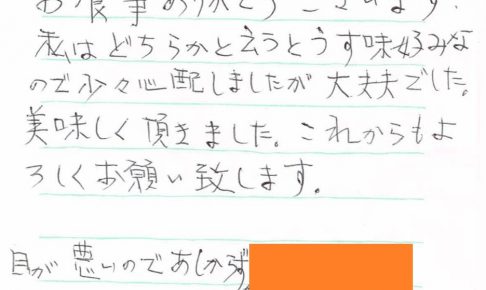 お食事ありがとうございます.
私はどちらかと云うとうす味好みな
ので少々心配しましたが大丈夫でした。
美味しく頂きました。これからもよ
ろしくお願い致します。
目が悪いのであしからず